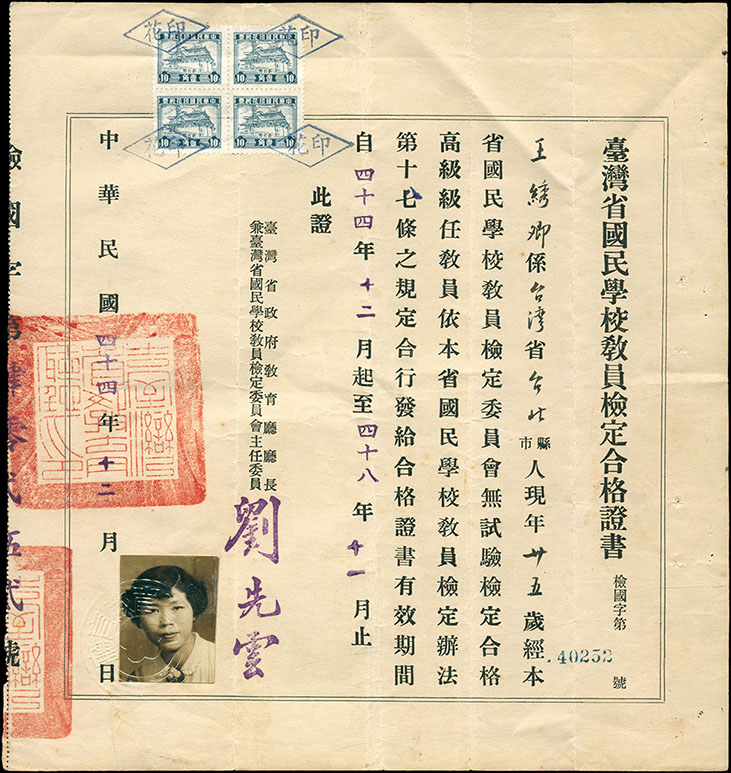 臺灣省國民學校教員檢定合格證書
檢國字第40252號
王綉卿係台湾省台北縣市人現年廿五歲經本
省國民學校教員檢定委員會無試驗檢定合格
高級級任教員依本省國民學校教員檢定辦法
第十七條之規定合行發給合格證書有效期間
自四十四年十二月起至四十八年十一月止
此證
臺灣省政府教育廳廳長
兼臺灣省國民學校教員檢定委員會主任委員
劉先雲
中華民國四十四年十二月 日
檢國字第肆零貳伍貳號
印花
印花
印花
印花
10 壹角 10
10 壹角 10
10 壹角 10
10 壹角 10